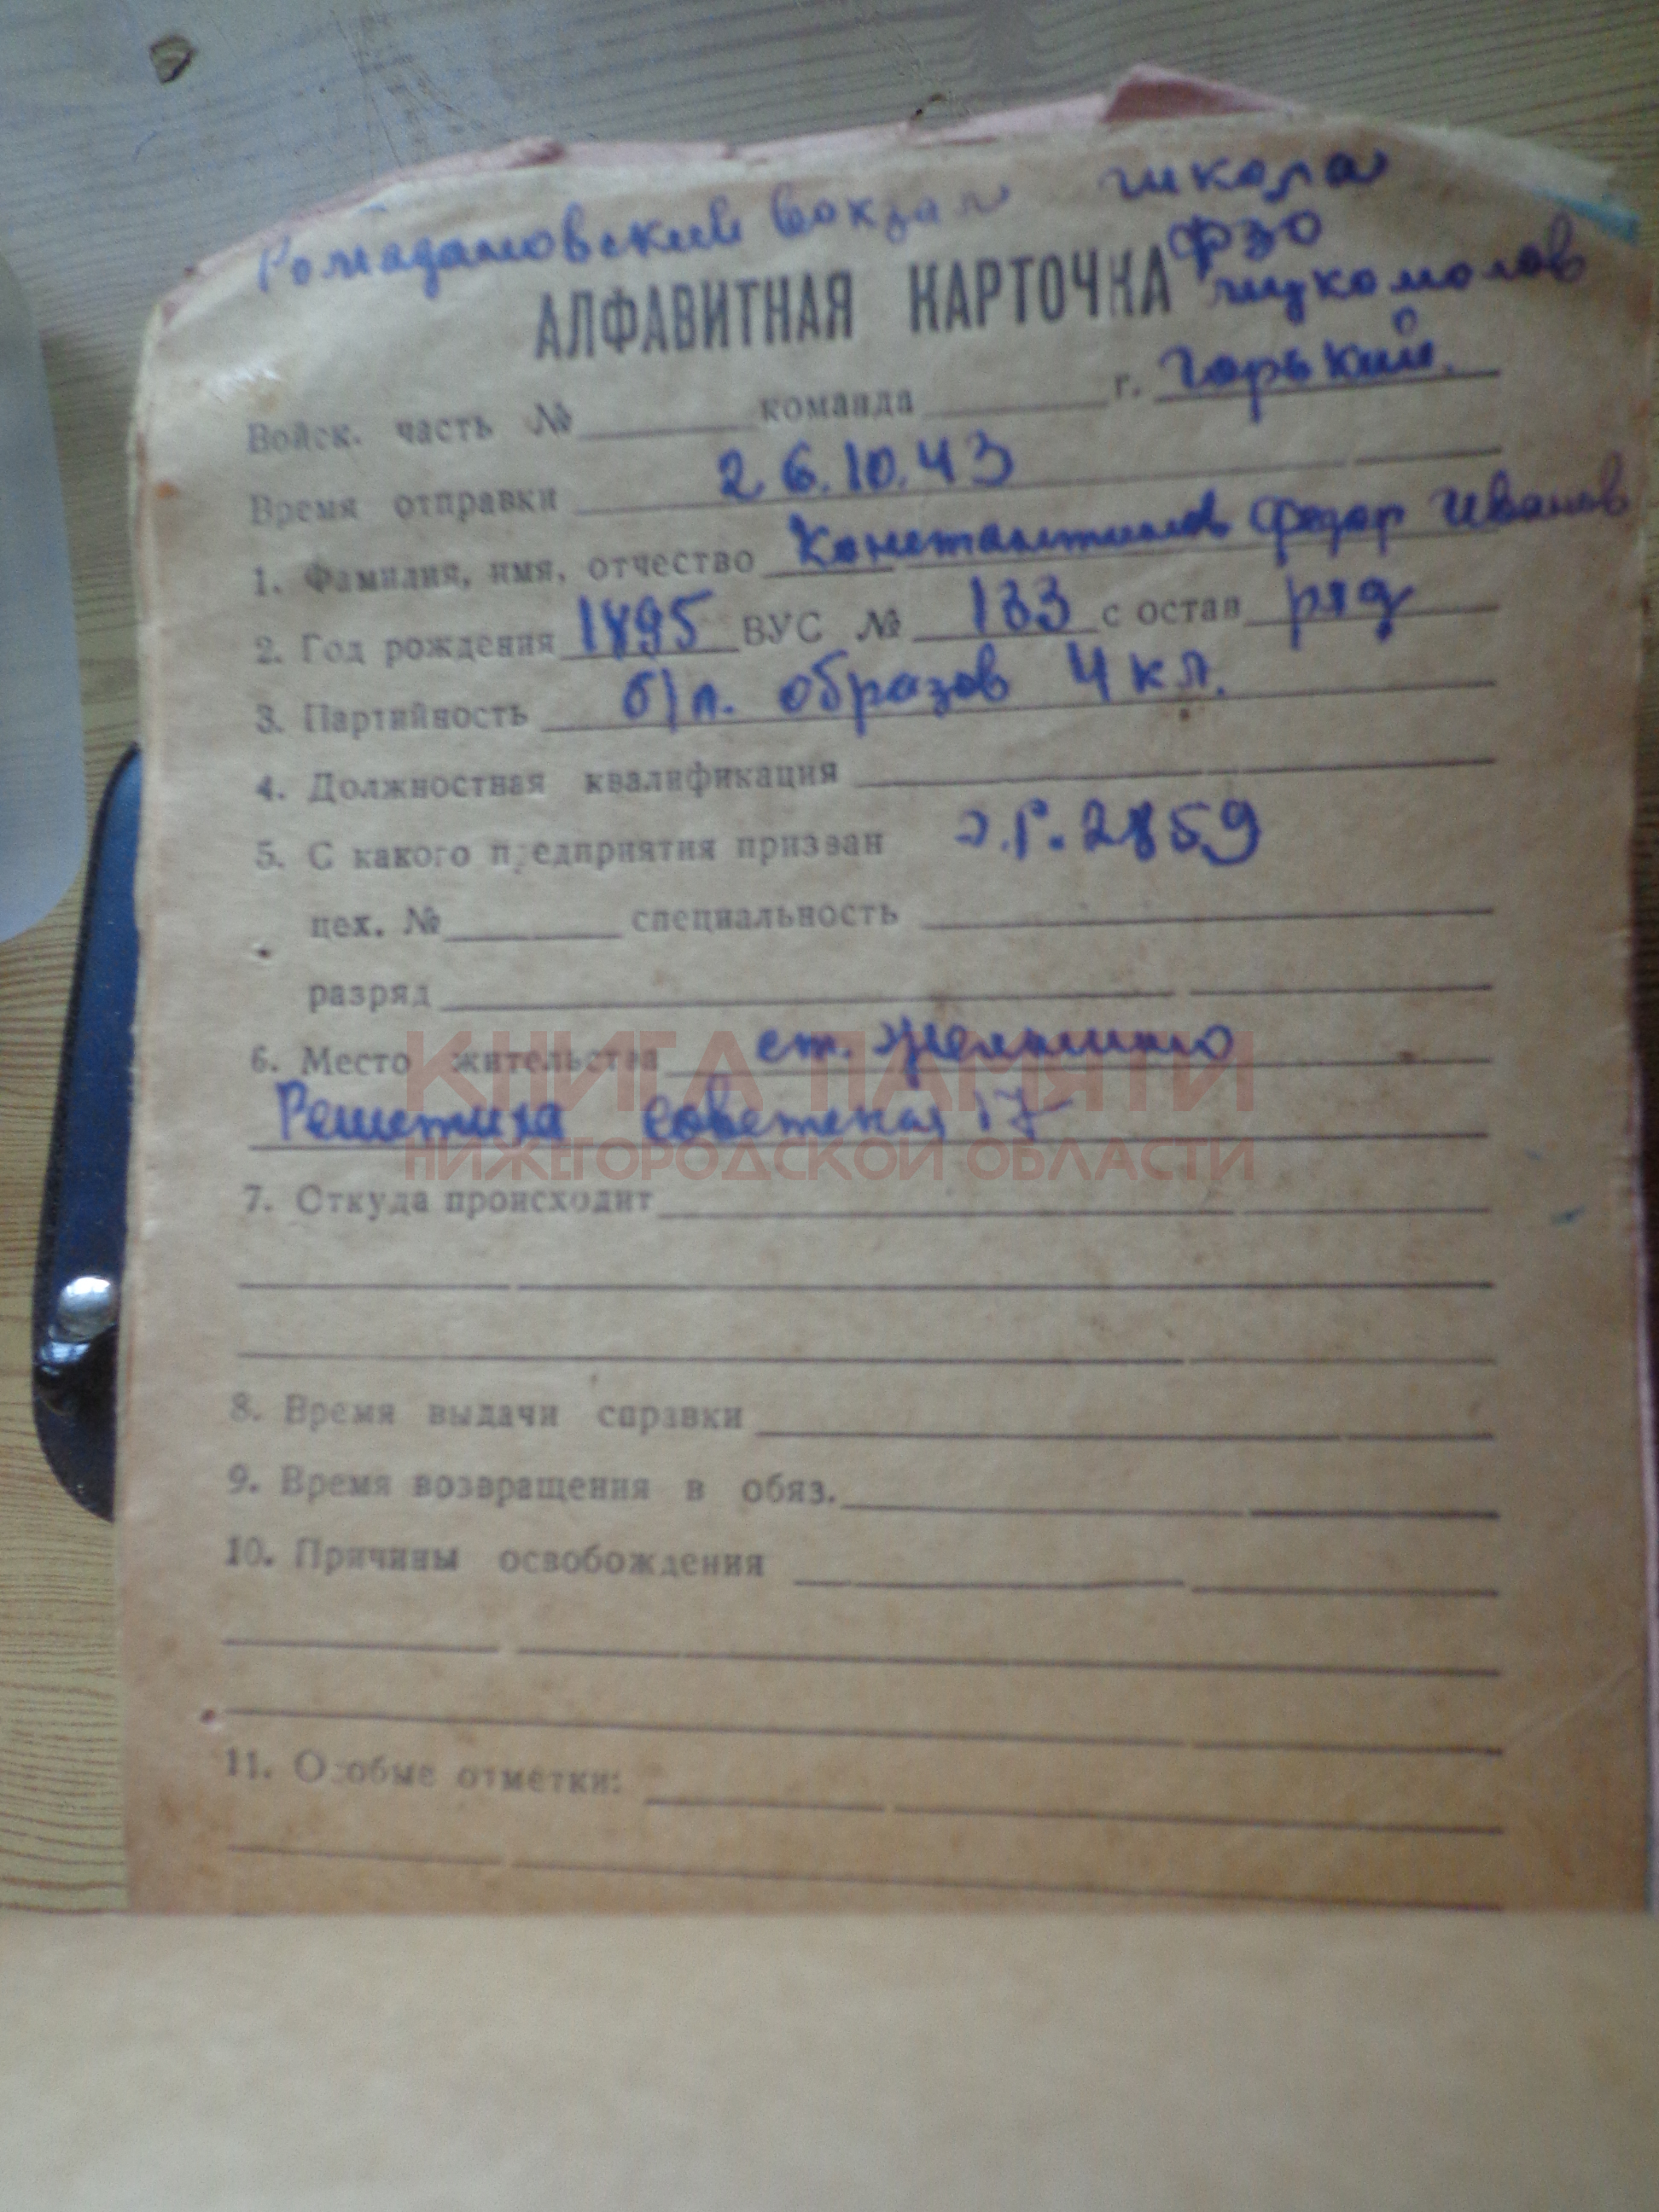 Ромадановский вокзал школа
ФЗО
мукомолов
АЛФАВИТНАЯ КАРТОЧКА
Войск. часть № команда г. Горький.
Время отправки 26.10.43
1. Фамилия, имя, отчество Константинов Федор Иванов
2. Год рождения 1895 ВУС № 133 состав ряд
3. Партийность б/п. образов 4 кл.
4. Должностная квалификация
5. С какого предприятия призван 2859
цех. № специальность
разряд
6. Место жительства ст. Желнино
Решетиха советская 17
КНИГА ПАМЯТИ
НИЖЕГОРОДСКОЙ ОБЛАСТИ
7. Откуда происходит
8. Время выдачи справки
9. Время возвращения в обяз.
10. Причины освобождения
11. Особые отметки: